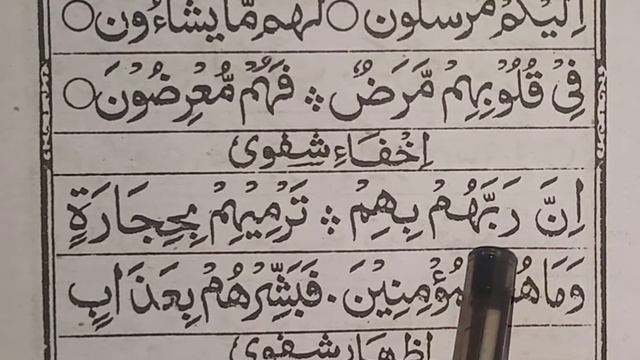 اِلَيْكُمْ مُّرْسَلُوْنَ ○ لَهُمْ مَّا يَشَاءُوْنَ ○
فِىْ قُلُوْبِهِمْ مَّرَضٌ ۞ فَهُمْ مُّعْرِضُوْنَ ○
اِخْفَاءِ شفوی
اِنَّ رَبَّهُمْ بِهِمْ ۞ تَرْمِيْهِمْ بِحِجَارَةٍ
وَمَا بِمُؤْمِنِيْنَ ۔ فَبَشِّرْهُمْ بِعَذَابٍ
اظهار شفوی